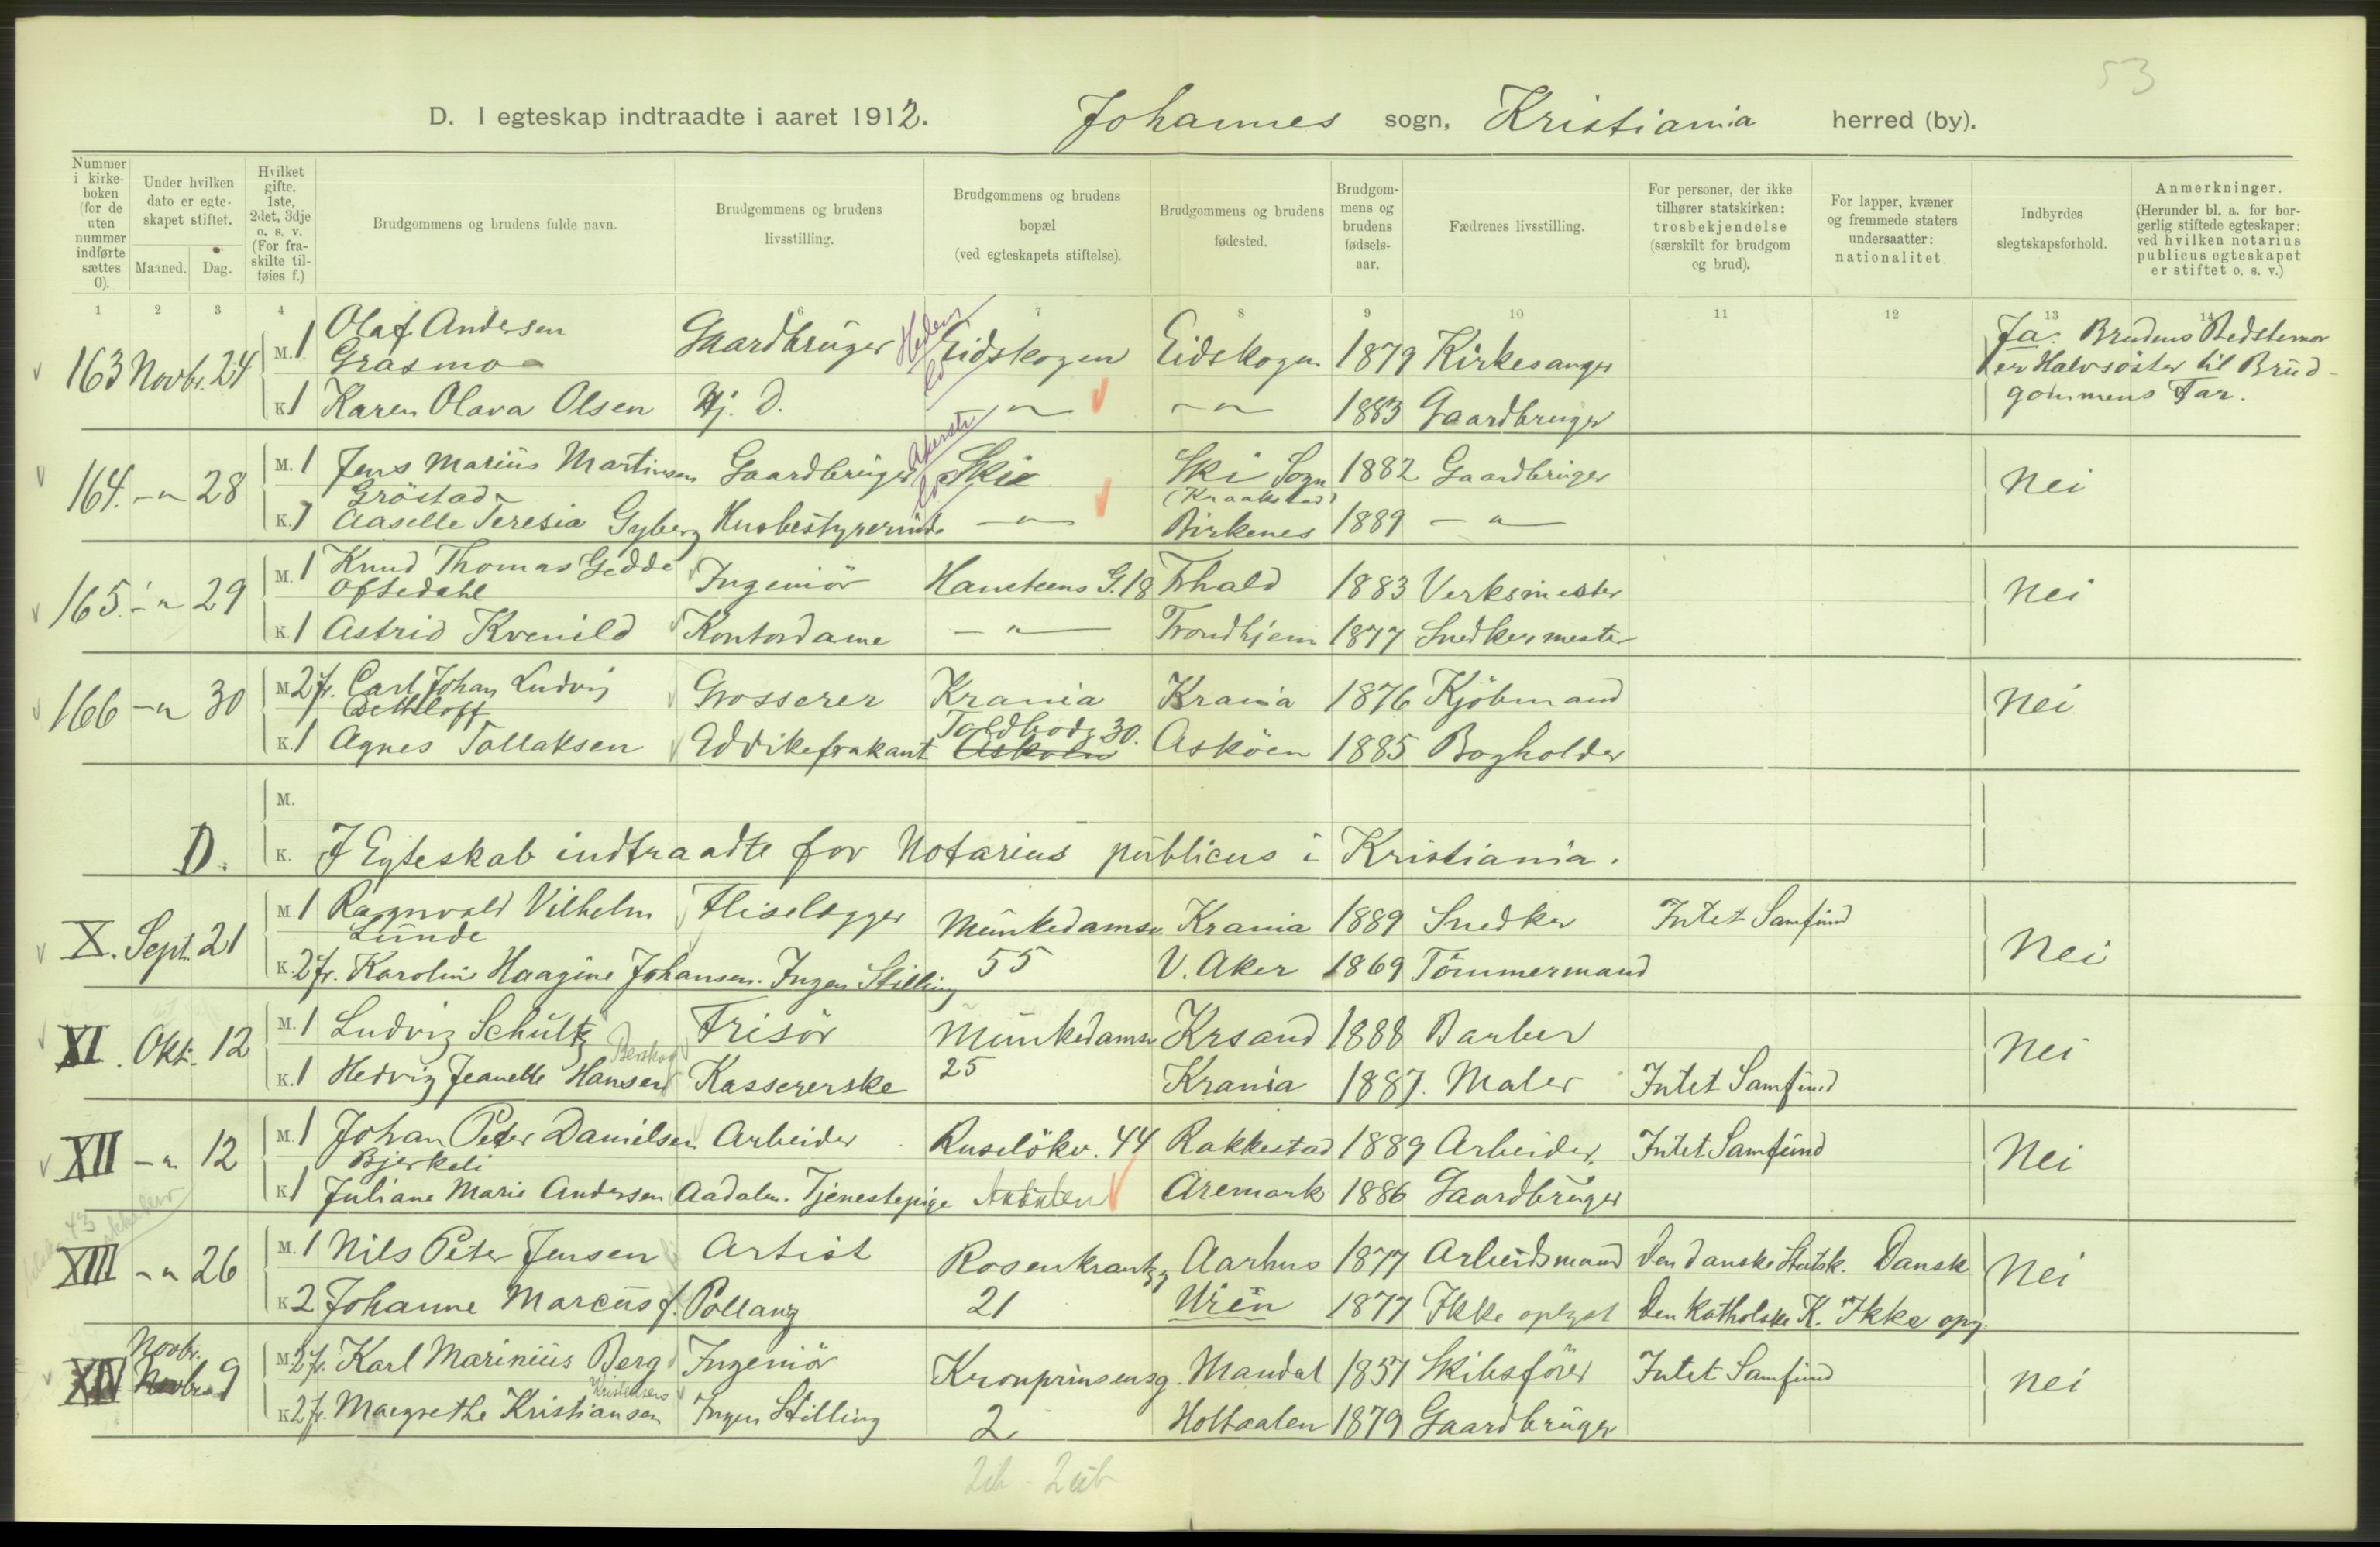 53
D. I egteskap indtraadte i aaret 1912. Johannes sogn, Kristiania herred (by).
Nummer i kirkeboken (for de uten nummer indførte sættes 0).
Under hvilken dato er egteskapet stiftet.
Maaned. Dag.
Hvilket gifte. 1ste, 2det, 3dje o. s. v. (For fraskilte tilføies f.)
Brudgommens og brudens fulde navn.
Brudgommens og brudens livsstilling.
Brudgommens og brudens bopæl (ved egteskapets stiftelse).
Brudgommens og brudens fødested.
Brudgommens og brudens fødselsaar.
Fædrenes livsstilling.
For personer, der ikke tilhører statskirken: trosbekjendelse (særskilt for brudgom og brud).
For lapper, kvæner og fremmede staters undersaatter: nationalitet
Indbyrdes slegtskapsforhold.
Anmerkninger. (Herunder bl. a. for borgerlig stiftede egteskaper: ved hvilken notarius publicus egteskapet er stiftet o. s. v.)
1 2 3 4 6 7 8 9 10 11 12 13 14
163 Novbr. 24 M. 1 Olaf Andersen Grasmo Gaardbruger Eidskogen Eidskogen 1879 Kirkesanger Ja. Brudens Bedstemor er Halvsøster til Brudgommens Far.
K 1 Karen Olava Olsen Hj. D. — " — — " — 1883 Gaardbruger
164. — " 28 M. 1 Jens Marius Martinsen Gröstad Gaardbruger Akersh. Ski Ski Sogn (Kraakstad) 1882 Gaardbruger Nei
K. 1 Aaselle Teresia Gyberg Husbestyrerinde — " — Birkenes 1889 — " —
165. — " 29 M. 1 Knud Thomas Gedde Oftedahl Ingeniör Hansteens G. 18 Frhald 1883 Verksmester Nei
K. 1 Astrid Kvenild Kontordame — " — Trondhjem 1877 Snedkermester
166 — " 30 M 2 fr. Carl Johan Ludvig Dethloff Grosserer Krania Krania 1876 Kjöbmand Nei
K. 1 Agnes Tollaksen Eddikefrakant Toldbodg 30. Askøen Asköen 1885 Bogholder
M.
D. K. I Egteskab indtraadte for Notarius publicus i Kristiania.
X. Sept. 21 M. 1 Ragnvald Vilhelm Lunde Fliselægger Munkedamsv. Krania 1889 Snedker Intet Samfund Nei
K. 2 fr. Karoline Haagine Johansen. Ingen Stilling 55 V. Aker 1869 Tömmermand
XI. Okt. 12 M. 1 Ludvig Schultz Frisör Munkedamsv Krsand 1888 Barber Nei
K. 1 Hedvig Jeanette Hansen Kassererske 25 Krania 1887. Maler Intet Samfund
XII — " 12 M. 1 Johan Peder Danielsen Bjerkeli Arbeider Ruselökv. 44 Rakkestad 1889 Arbeider. Intet Samfund Nei
K 1 Juliane Marie Andersen Aadalen. Tjenestepige Aremark 1886 Gaardbruger
XIII — " 26 M. 1 Nils Peter Jensen Artist Rosenkrantzg Aarhus 1877 Arbeidsmand Den danske Statsk. Dansk Nei
K 2 Johanne Marcus f. Pollang 21 Wien 1877 Ikke oplyst Den katholske K. Ikke opg.
XIV Novbr. 9 M 2 fr. Karl Marinius Berg Ingeniör Kronprinsensg. Mandal 1851 Skibsförer Intet Samfund Nei
K 2 fr. Margrethe Kristiansen Kristensen Ingen Stilling 2 Holtaalen 1879 Gaardbruger